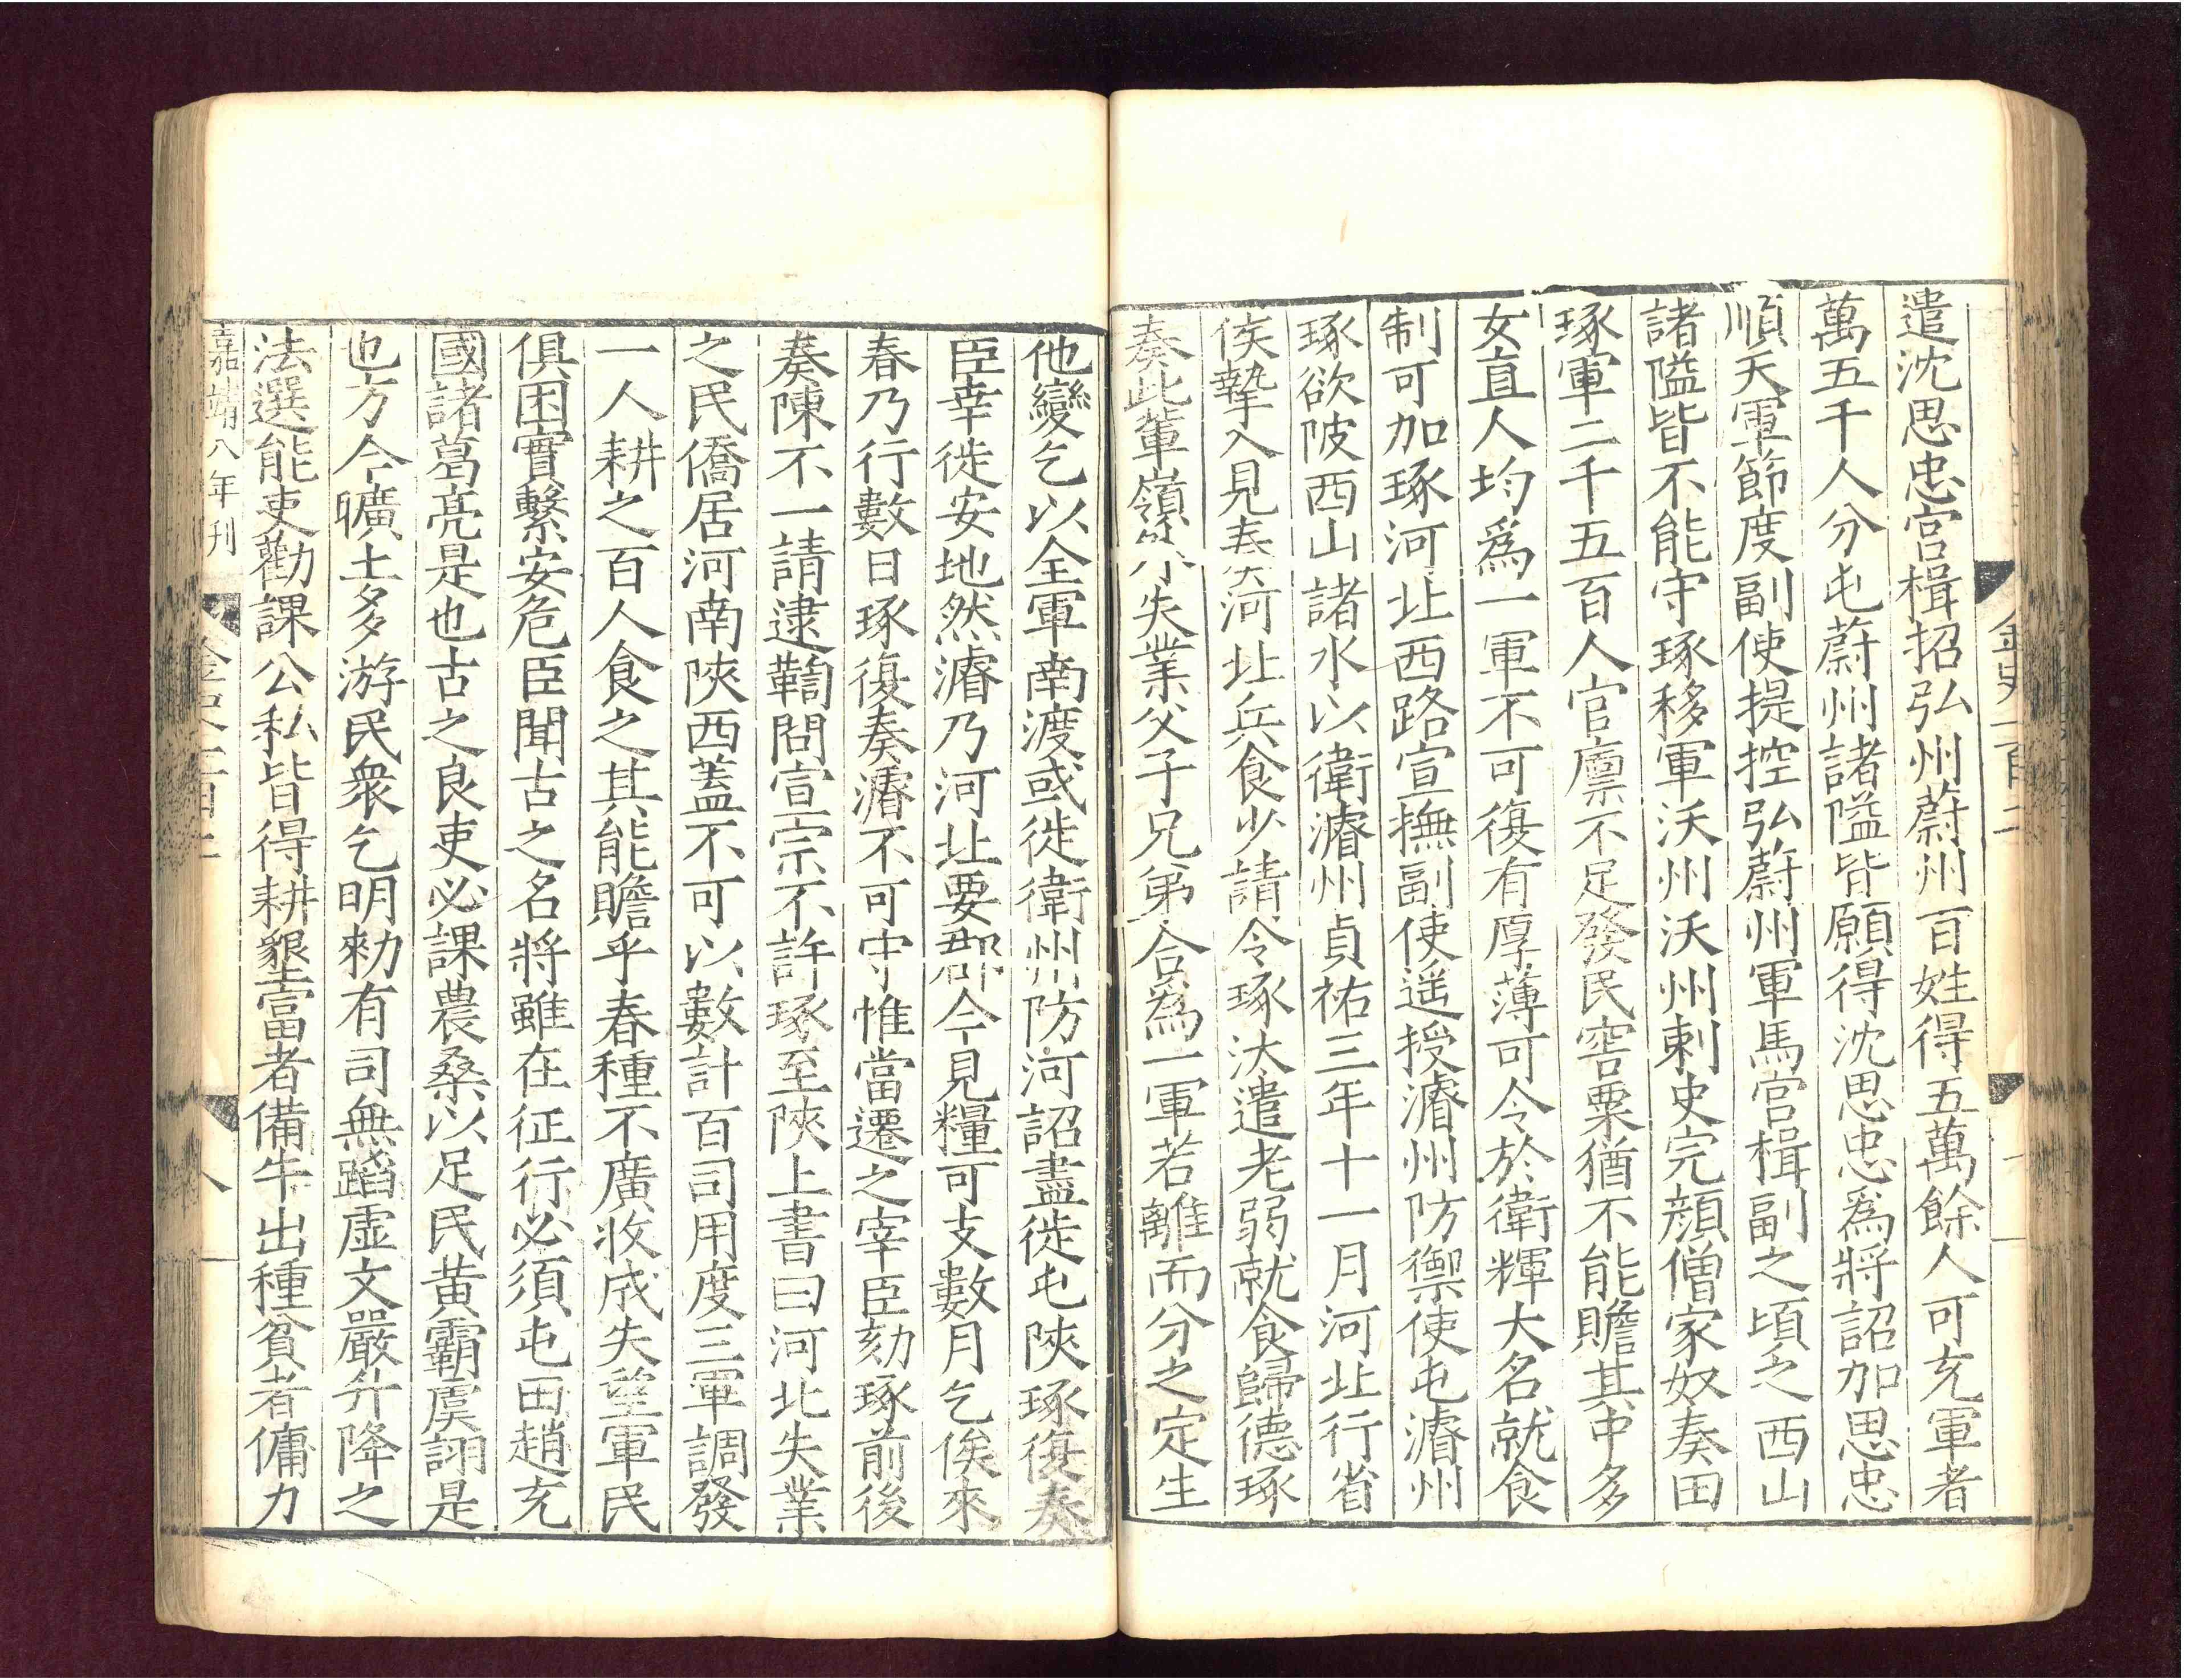 金史一百二
遣沈思忠宮楫招弘州蔚州百姓得五萬餘人可充軍者
萬五千人分屯蔚州諸隘皆願得沈思忠爲將詔加思忠
順天軍節度副使提控弘蔚州軍馬宮楫副之頃之西山
諸隘皆不能守琢移軍沃州沃州刺史完顏僧家奴奏田
琢軍二千五百人官廪不足發民窖粟猶不能贍其中多
女直人均爲一軍不可復有厚薄可令於衛輝大名就食
制可加琢河北西路宣撫副使遥授濬州防禦使屯濬州
琢欲陂西山諸水以衛濬州貞祐三年十一月河北行省
侯摯入見奏河北兵食少請令琢汰遣老弱就食歸德琢
奏此輩嶺外失業父子兄弟合爲一軍若離而分之定生
他變乞以全軍南渡或徙衛州防河詔盡徙屯陝琢復奏
臣幸徙安地然濬乃河北要郡今見糧可支數月乞俟來
春乃行數日琢復奏濬不可守惟當遷之宰臣劾琢前後
奏陳不一請逮鞫問宣宗不許琢至陝上書曰河北失業
之民僑居河南陝西蓋不可以數計百司用度三軍調發
一人耕之百人食之其能贍乎春種不廣收成失望軍民
俱困實繫安危臣聞古之名將雖在征行必須屯田趙充
國諸葛亮是也古之良吏必課農桑以足民黃霸虞詡是
也方今曠土多游民衆乞明勑有司無蹈虛文嚴升降之
法選能吏勸課公私皆得耕墾富者備牛出種貧者傭力
嘉靖八年刊
金史一百二
八